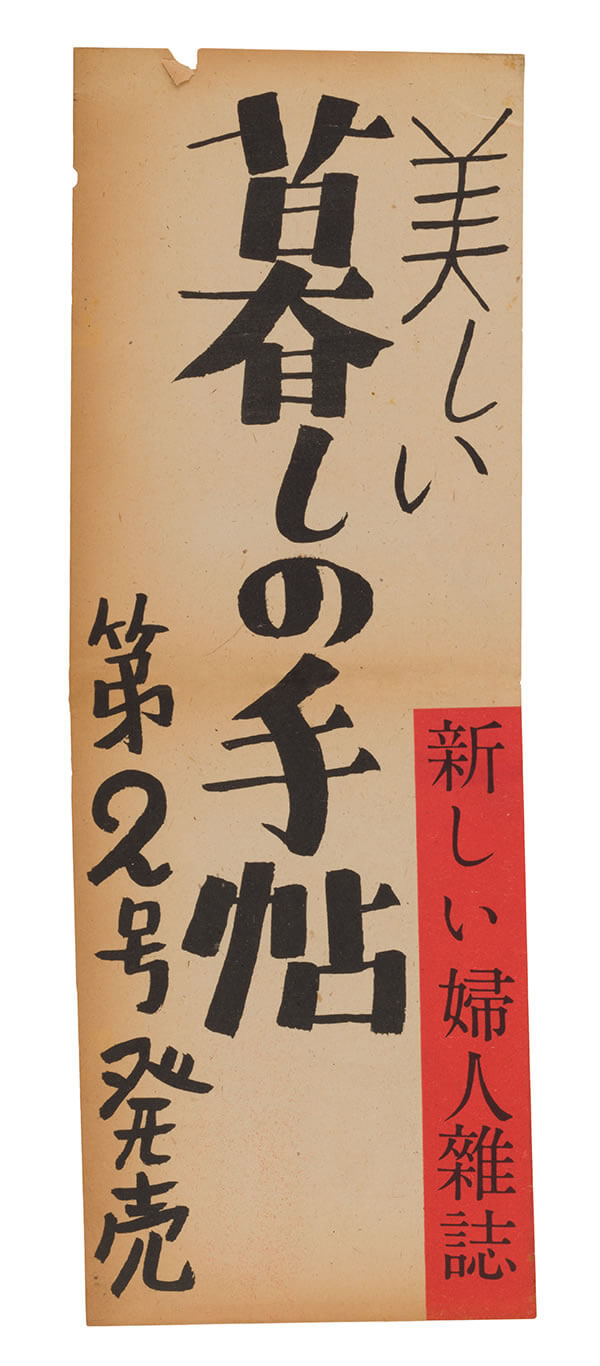 美しい
暮しの手帖
第2号発売
新しい婦人雑誌